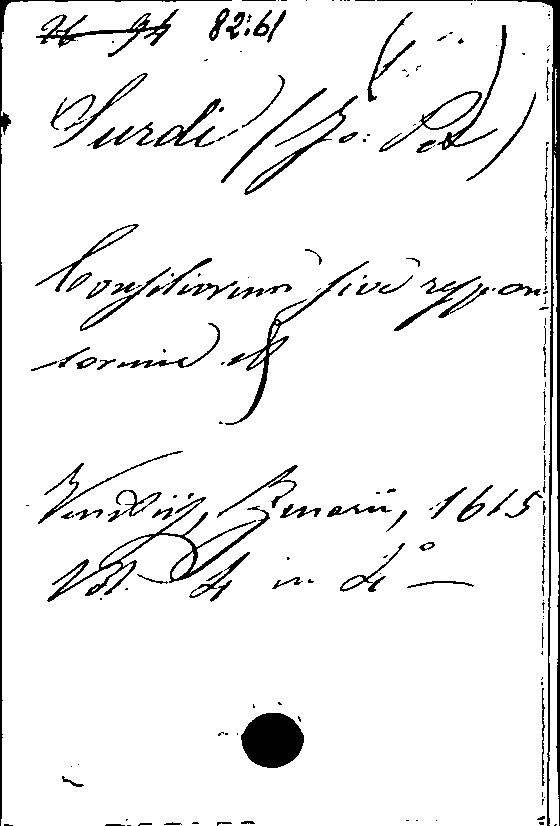 82:61
Surdi (Jo: Pet)
Consiliorum sive respon-
sorum etc
Venetiis, Zenarii, 1615
Vol. 4 in 4º —